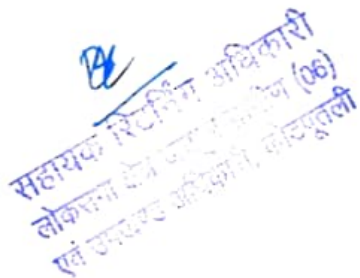 सहायक रिटर्निंग अधिकारी
लोकसभा क्षेत्र ग्रामीण (06)
एवं उपखण्ड अधिकारी, कोटपूतली